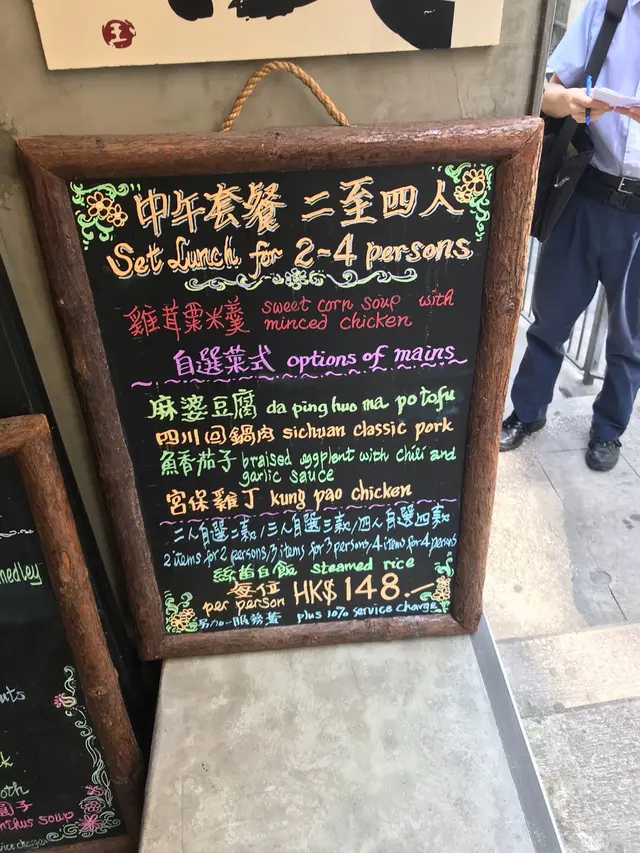 王
中午套餐 二至四人
Set Lunch for 2-4 persons
雞茸粟米羹 sweet corn soup with
minced chicken
自選菜式 options of mains
麻婆豆腐 da ping huo ma po tofu
四川回鍋肉 sichuan classic pork
魚香茄子 braised eggplant with chili and
garlic sauce
宮保雞丁 kung pao chicken
二人自選二款/三人自選三款/四人自選四款
2 items for 2 persons/3 items for 3 persons/4 items for 4 persons
絲苗白飯 steamed rice
每位
per person HK$148.-
另加一服務費 plus 10% service charge
medley
soup